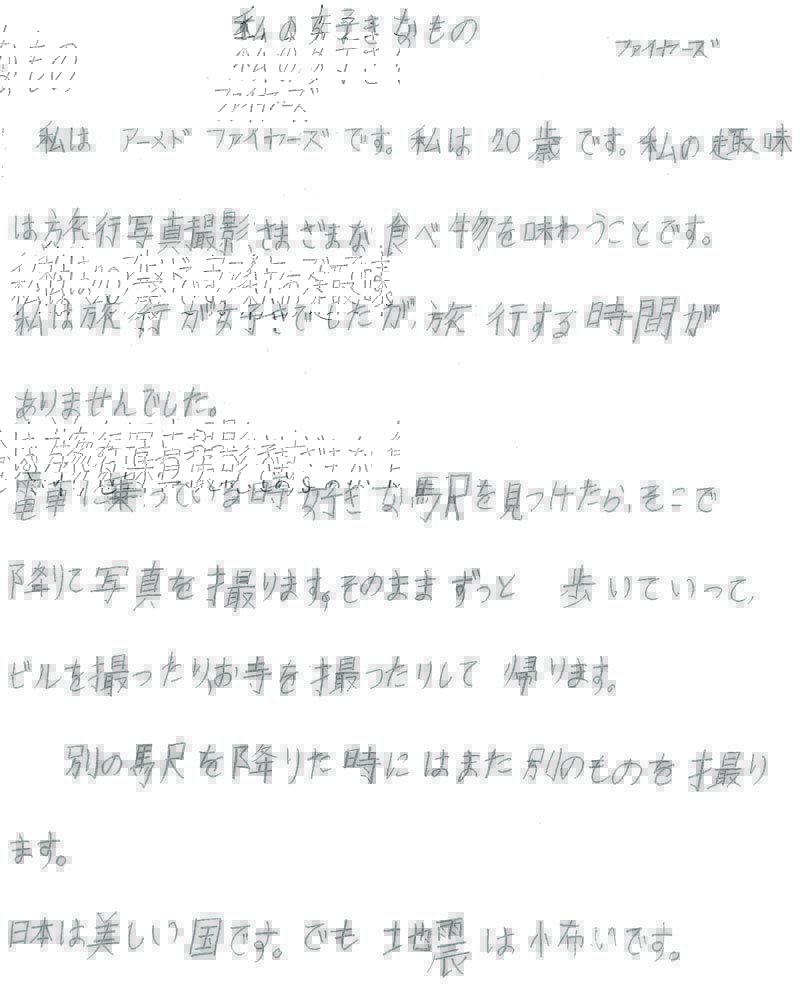 私の好きなもの
ファイヤーズ
私は アーメド ファイヤーズです。私は 20歳です。私の趣味
は旅行写真撮影さまざまな食べ物を味わうことです。
私は旅行が好きでしたが、旅行する時間が
ありませんでした。
電車に乗っている時 好きな駅を見つけたら、そこで
降りて写真を撮ります。そのまま ずっと 歩いていって、
ビルを撮ったり、お寺を撮ったりして 帰ります。
別の駅を降りた時にはまた別のものを撮り
ます。
日本は美しい国です。でも 地震は怖いです。